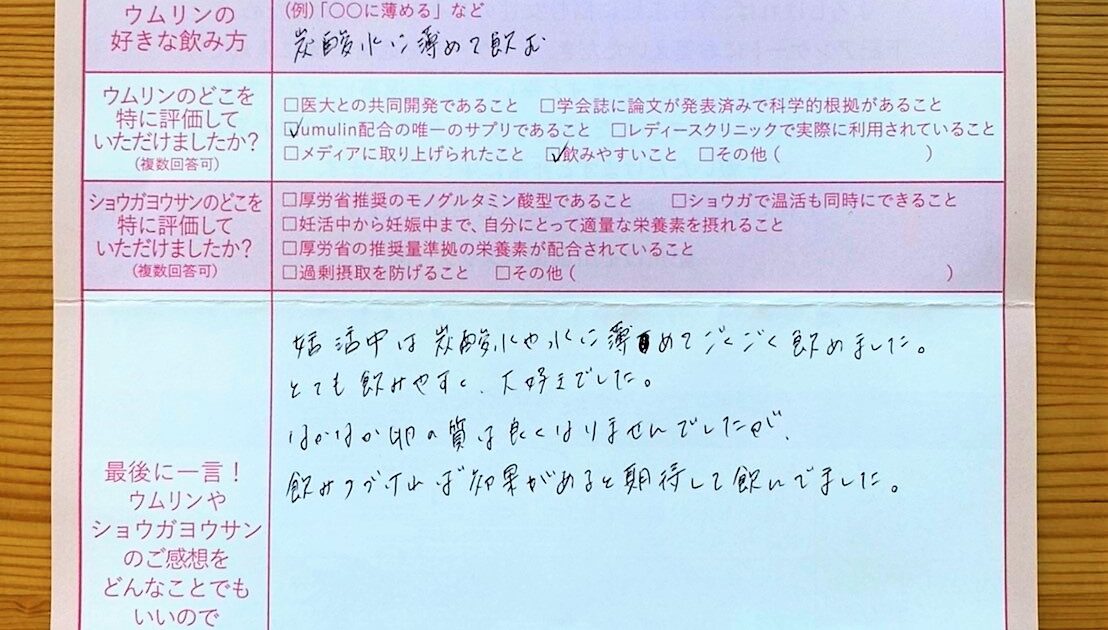 ウムリンの
好きな飲み方
(例)「〇〇に薄める」など
炭酸水に薄めて飲む
ウムリンのどこを
特に評価して
いただけましたか?
(複数回答可)
□医大との共同開発であること □学会誌に論文が発表済みで科学的根拠があること
☑umulin配合の唯一のサプリであること □レディースクリニックで実際に利用されていること
□メディアに取り上げられたこと ☑飲みやすいこと □その他( )
ショウガヨウサンのどこを
特に評価して
いただけましたか?
(複数回答可)
□厚労省推奨のモノグルタミン酸型であること □ショウガで温活も同時にできること
□妊活中から妊娠中まで、自分にとって適量な栄養素を摂れること
□厚労省の推奨量準拠の栄養素が配合されていること
□過剰摂取を防げること □その他( )
最後に一言!
ウムリンや
ショウガヨウサン
のご感想を
どんなことでも
いいので
妊活中は炭酸水や水に薄めてごくごく飲めました。
とても飲みやすく、大好きでした。
なかなか卵の質は良くなりませんでしたが、
飲みつづければ効果があると期待して飲んでました。